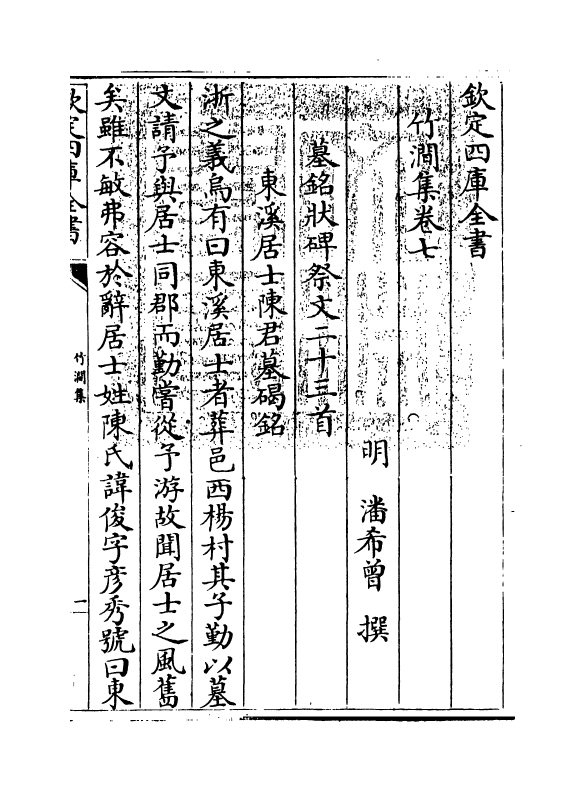 欽定四庫全書
竹澗集卷七
明 潘希曾 撰
墓銘狀碑祭文二十三首
東溪居士陳君墓碣銘
浙之義烏有曰東溪居士者葬邑西楊村其子勤以墓
文請予與居士同郡而勤嘗從予游故聞居士之風舊
矣雖不敏弗容於辭居士姓陳氏諱俊字彦秀號曰東
欽定四庫全書
竹澗集
一